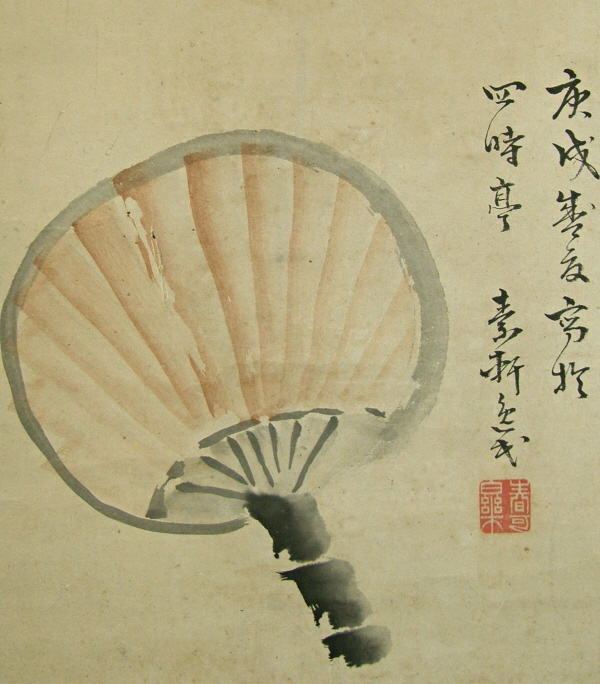 庚戌盛夏寫於
四時亭 素軒